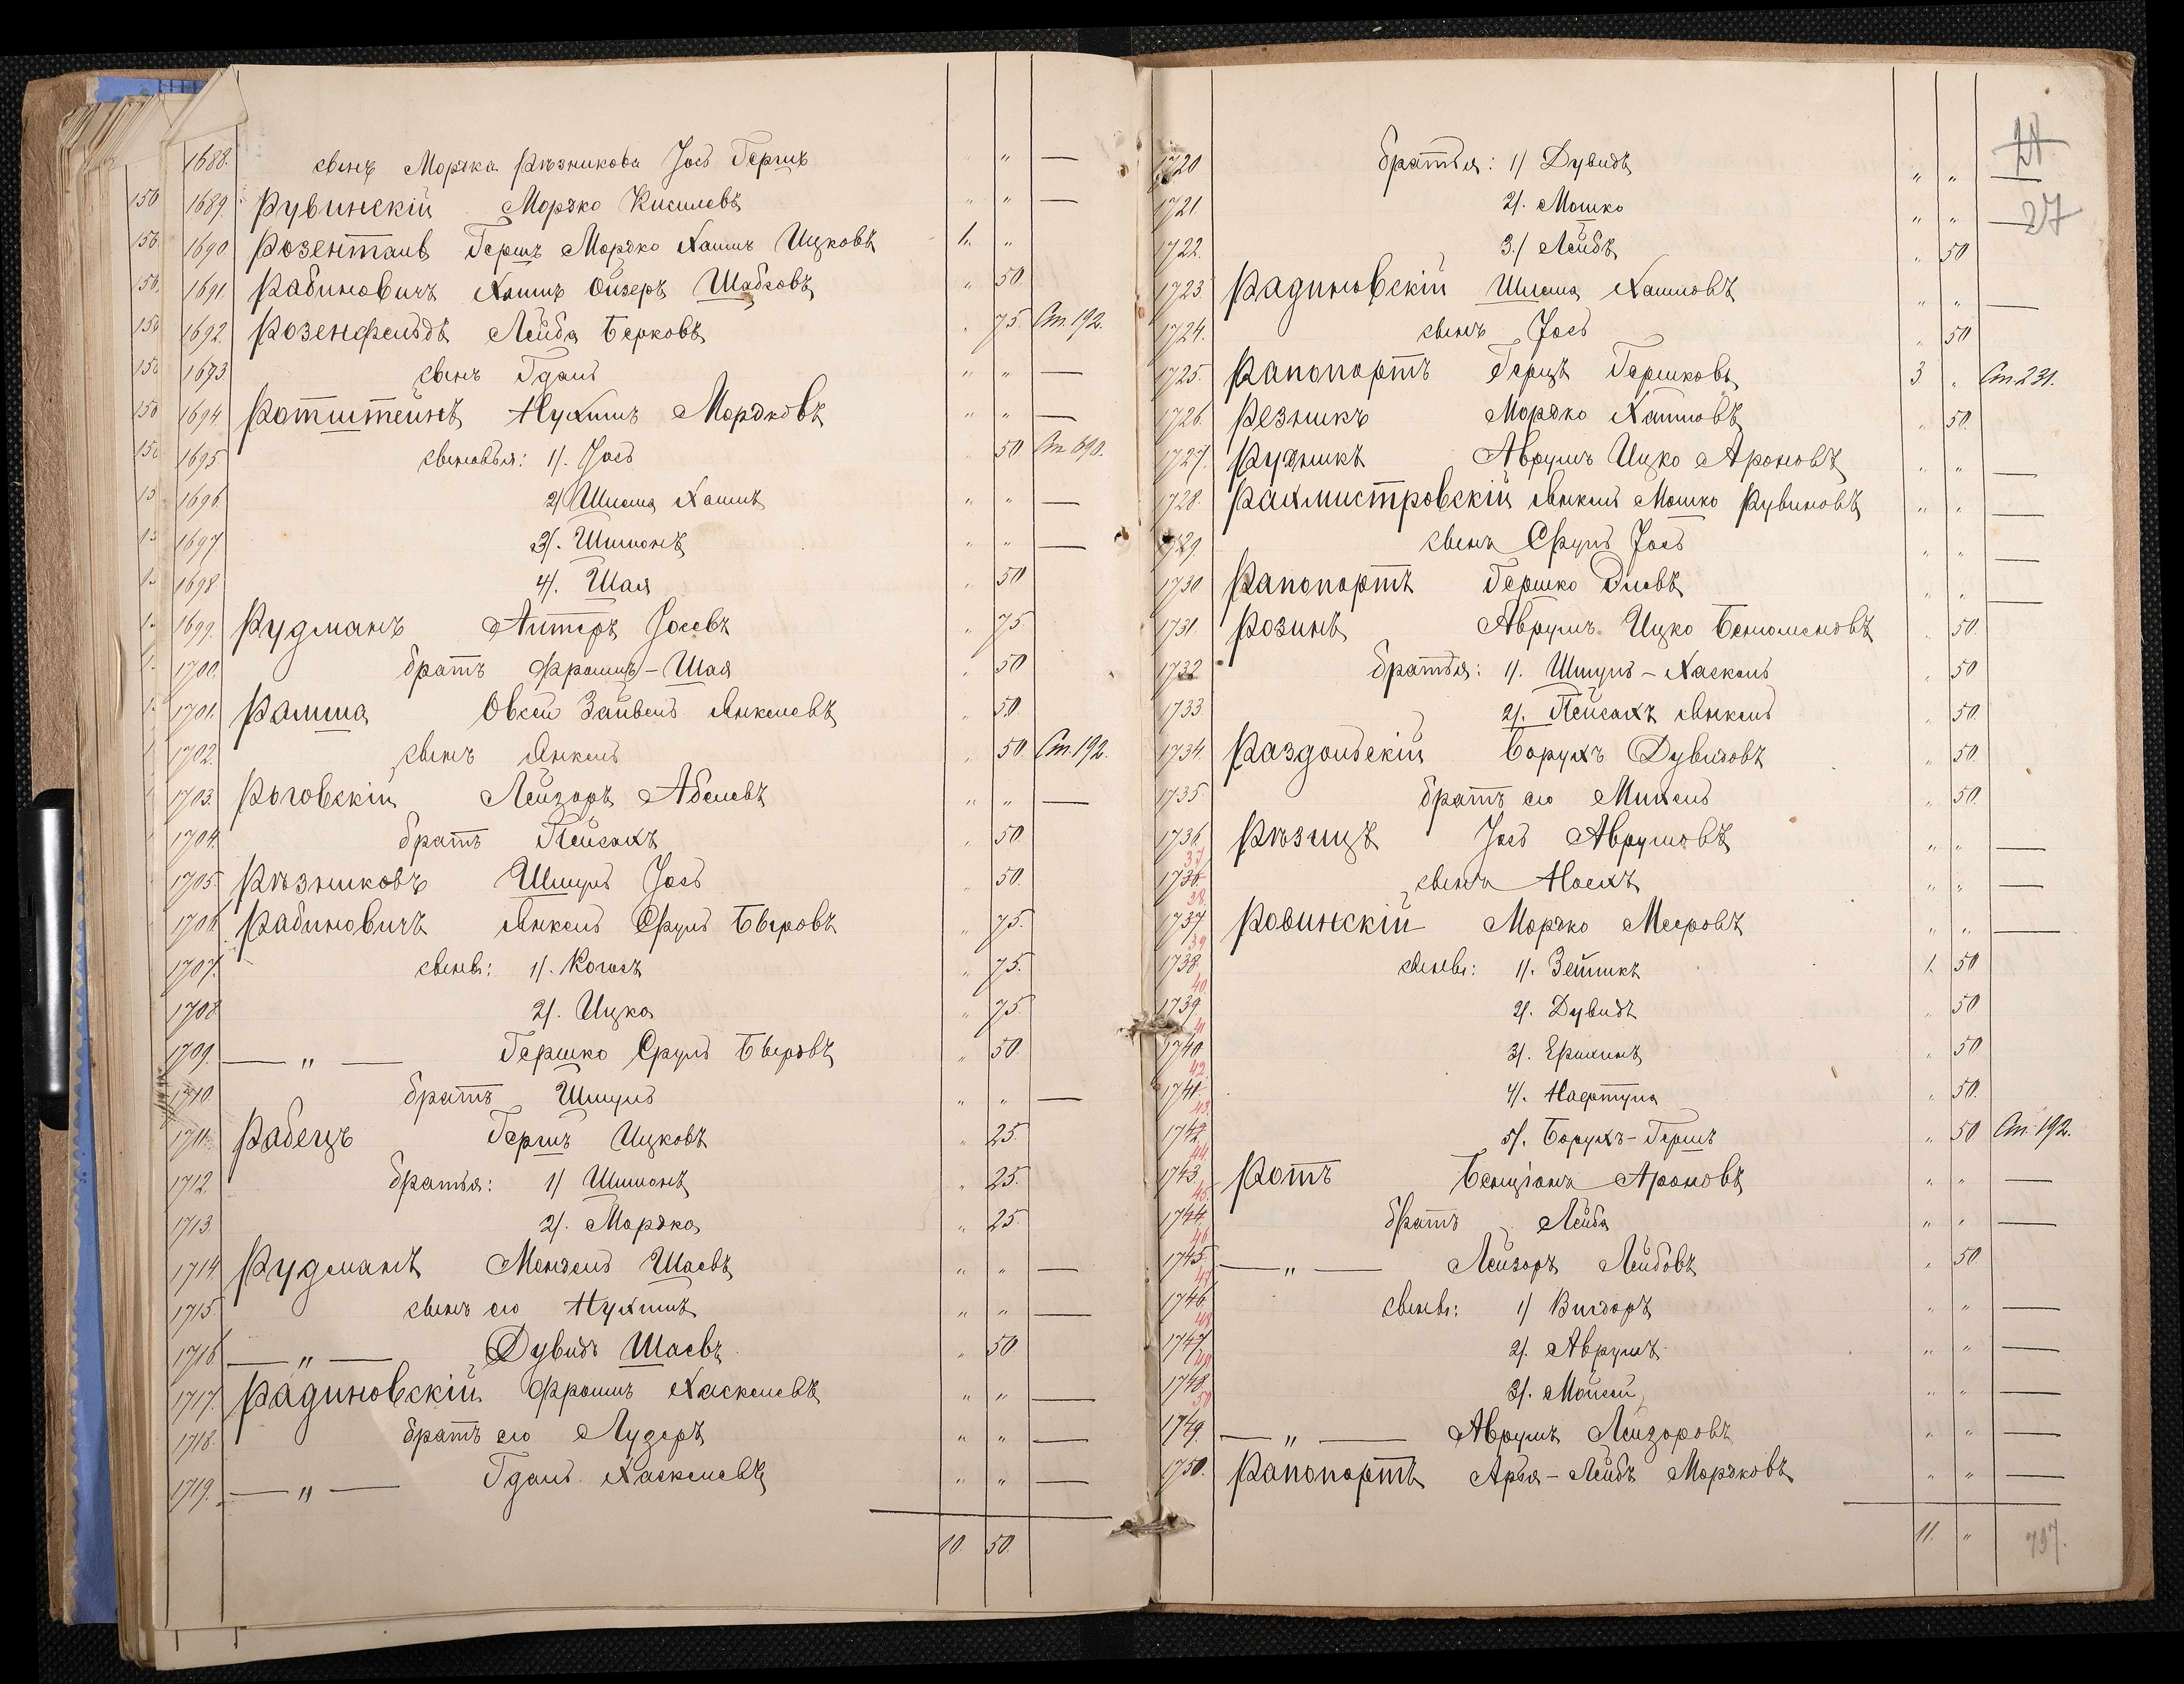 1688. сынъ Мордка Рѣзникова Іось Гершъ " " —
150 1689. Рувинскій Мордко Кисилевъ " " —
150 1690 Розенталь Гершъ Мордко Хаимъ Ицковъ 1. "
150. 1691. Рабиновичъ Хаимъ Ойзеръ Шабсовъ " 50.
150 1692. Розенфельдъ Лейба Берковъ " 75. Ст. 192.
150 1673 сынъ Гдаль " " —
150 1694 Ротштейнъ Нухимъ Мордковъ " " —
150 1695 сыновья: 1/. Іось 50 Ст 690.
15 1696 2/ Шлема Хаимъ " " —
15 1697 3/. Шимонъ " " —
1698 4/. Шая " 50
1699. Рудманъ Алтеръ Іосевъ " 75.
1700. братъ Фроимъ-Шая " 50
1701. Рашша Овсей Зайвель Янкелевъ " 50.
1702. сынъ Янкель " 50. Ст. 192.
1703. Роговскій Лейзоръ Абелевъ " " —
1704. братъ Пейсахъ " 50.
1705. Рѣзниковъ Шмуль Іось " 50.
1706 Рабиновичъ Янкель Сруль Беровъ " 75.
1707. сыны: 1/. Когосъ " 75.
1708 2/. Ицко " 75.
1709. — " — Гершко Сруль Беровъ " 50
1710 братъ Шмуль " " —
1711. Рабецъ Гершъ Ицковъ " 25.
1712. братья: 1/ Шимонъ " 25.
1713. 2/. Мордко " 25.
1714 Рудманъ Мендель Шаевъ " " —
1715 сынъ его Нухимъ " " —
1716 — " — Дувидъ Шаевъ " 50
1717. Радиновскій Фроимъ Хаскелевъ " " —
1718. братъ его Лузеръ " " —
1719. — " — Гдаль Хаскелевъ " " —
10 50.
27
27
1720 братья: 1/ Дувидъ " " —
1721 2/. Мошко " " —
1722. 3./ Лейбъ " 50
1723. Радиновскій Шлема Хаимовъ " " —
1724. сынъ Іось " 50
1725. Рапопортъ Герцъ Гершковъ 3 " Ст. 231.
1726. Резникъ Мордко Хаимовъ " 50.
1727. Рудникъ Аврумъ Ицко Ароновъ " " —
1728. Рахмистровскій Янкель Мошко Рувиновъ " " —
1729 сынъ Сруль Іось " " —
1730 Рапопортъ Гершко Элевъ " " —
1731 Розинъ Аврумъ Ицко Бенюменовъ " 50.
1732 братья: 1/. Шмуль-Хаскель " 50
1733. 2/. Пейсахъ Янкель " 50.
1734. Раздольскій Борухъ Дувидовъ " 50.
1735 братъ его Михель " 50.
1736. Рѣзницъ Іось Аврумовъ " " —
1736. 37 сынъ Носехъ " " —
1737 38. Ровинскій Мордко Мееровъ " " —
1738. 39 сыны: 1/. Зейликъ 1. 50
1739. 40. 2/. Дувидъ " 50
1740 41 3/. Ерихимъ " 50
1741. 42. 4/. Нафтула " 50.
1742. 43. 5/. Борухъ-Гершъ " 50 Ст. 192.
1743. 44. Ротъ Бенціонъ Ароновъ " " —
1744. 45. братъ Лейба " " —
1745. 46. — " — Лейзоръ Лейбовъ " 50
1746. 47. сыны: 1/ Вигдоръ " " —
1747. 48. 2/. Аврумъ " " —
1748. 49. 3/. Мойсей " " —
1749. 50 — " — Аврумъ Лейзоровъ " " —
1750. Рапопортъ Арья-Лейбъ Мордковъ " " —
11. " 797.